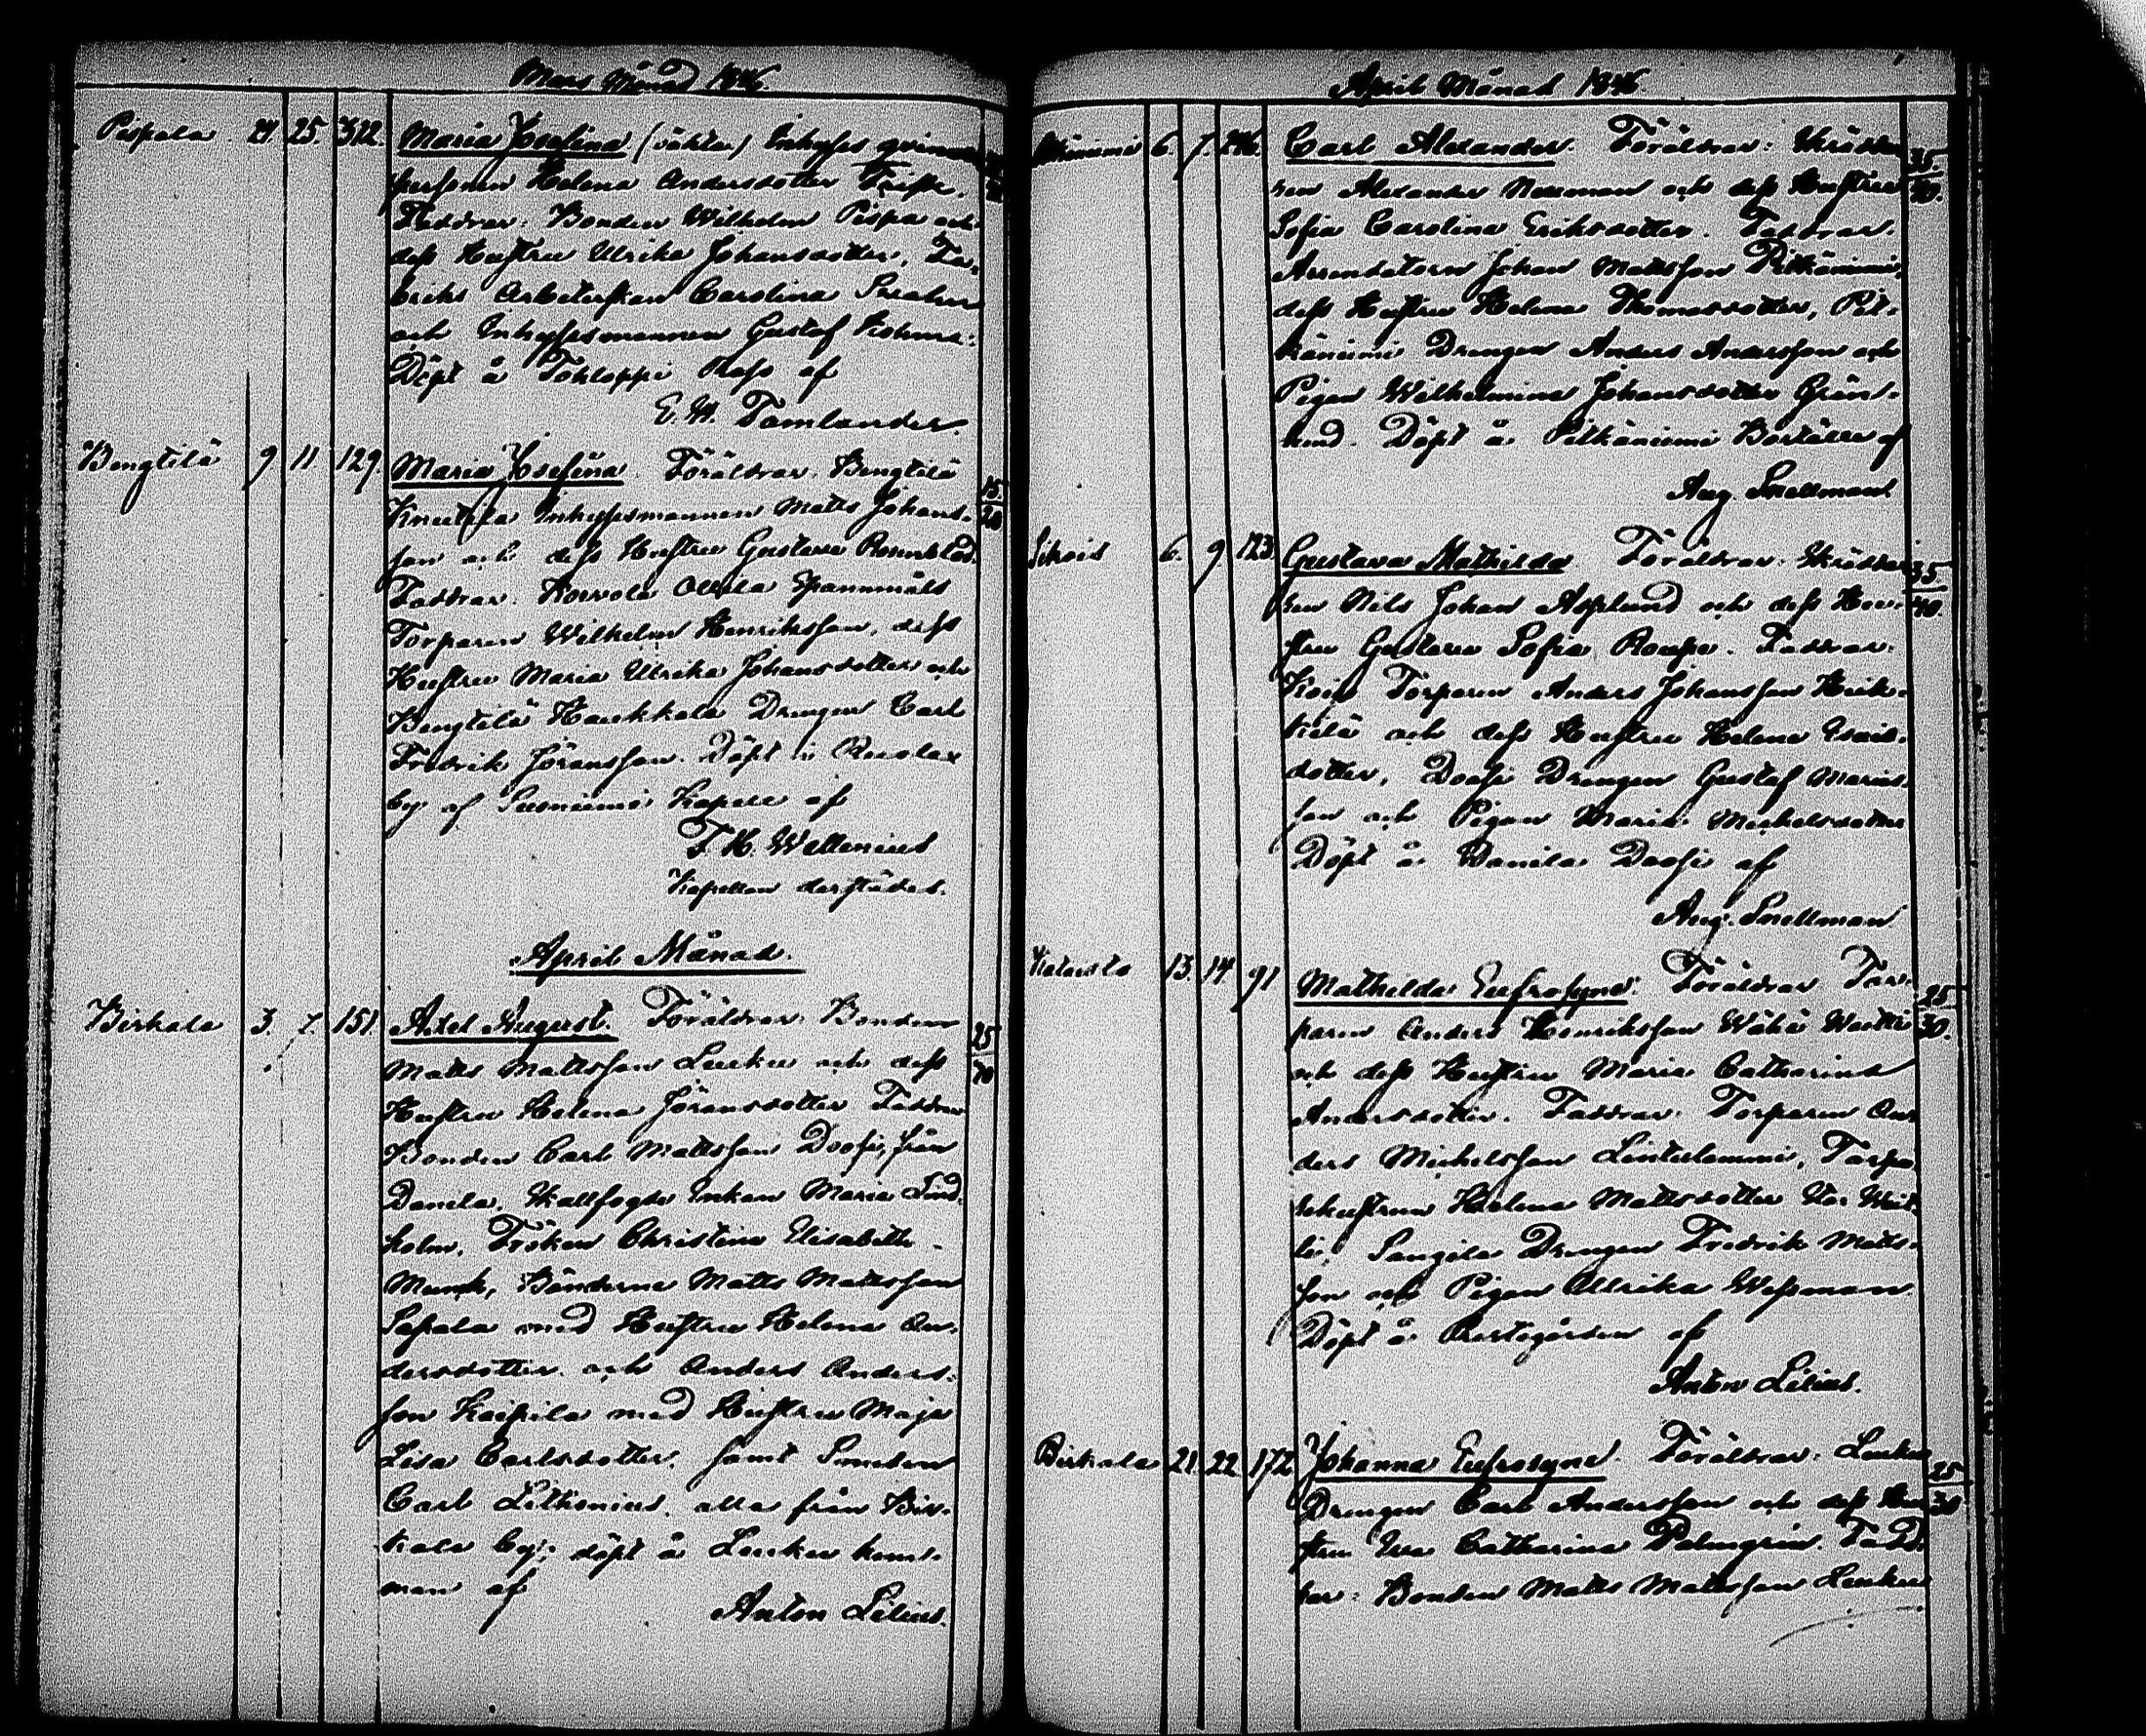 Mars Månad 1846.
Pispala 21 25. 322. Maria Josefina (oäkta) Inhyses qvinns
personen Helena Andersdotter
Faddrar. Bonden Wilhelm Pispa och
dess Hustru Ulrika Johansdotter, Fa-
briks Arbeterskan Carolina
och Inhysesmannen Gustaf
Döpt å Tohloppi af
E. W. Tamlander.
Bengtilä 9 11 129. Maria Josefina. Föräldrar. Bengtilä 15
Inhysesmannen Matts Johans- 20
son och dess Hustru Gustava
Faddrar. Korvola Ollila Spannmåls
Torparen Wilhelm Henriksson, dess
Hustru Maria Ulrika Johansdotter och
Bengtilä Haukkala Drengen Carl
Fredrik Göransson. Döpt i
by af Suoniemi Kapell af
F. H. Wellenius
Kapellan derstädes.
April Månad.
Birkala 3. 7. 151 Axel August. Föräldrar. Bonden 25
Matts Mattsson Luku och dess 70
Hustru Helena Göransdotter Faddrar
Bonden Carl Mattsson Doose, från
Danila, Enkan Maria Lind-
holm, Fröken Christina Elisabeth
Munck, Bönderne Matts Mattsson
Sapala med Hustru Helena An-
dersdotter och Anders Anders-
son Kaipila med Hustru Maja
Lisa Carlsdotter, samt Smeden
Carl Lithonius, alla från Bir-
kala by; döpt å Luku hem-
man af
Anton Lilius.
April Månad 1846.
6. 7. 246. Carl Alexander. Föräldrar: Skrädda- 35
ren Alexander och dess Hustru 40.
Sofia Carolina Eriksdotter. Faddrar.
Arrendatorn Johan Mattsson Pitkäniemi,
dess Hustru Helena Thomasdotter, Pit-
käniemi Drengen Anders Andersson och
Pigan Wilhelmina Johansdotter Grön-
lund. Döpt å Pitkäniemi Boställe af
Aug. Snellman.
6. 9 123 Gustava Mathilda Föräldrar. Skrädda- 35
ren Nils Johan Asplund och dess Hu- 40.
stru Gustava Sofia. Faddrar.
Torparen Anders Johansson Heik-
kilä och dess Hustru Helena Esais-
dotter, Doose Drengen Gustaf
son och Pigan Maria Michelsdotter
Döpt å Danila Doose af
Aug. Snellman
13. 14. 91 Mathilda Eufrosyne. Föräldrar Tor- 25
paren Anders Henriksson Wähä 30.
och dess Hustru Maria Catharina
Andersdotter. Faddrar. Torparen An-
ders Michelsson Lintulammi, Torpa-
rehustrun Helena Mattsdotter
Sangila Drengen Fredrik Matts-
son och Pigan Ullrika Wessman.
Döpt å Prestegården af
Anton Lilius.
Birkala 21. 22. 172 Johanna Eufrosyne. Föräldrar: Luku 25
Drengen Carl Andersson och dess Hu- 30
stru Eva Catharina Palmgrén. Fadd-
rar: Bonden Matts Mattsson Luku